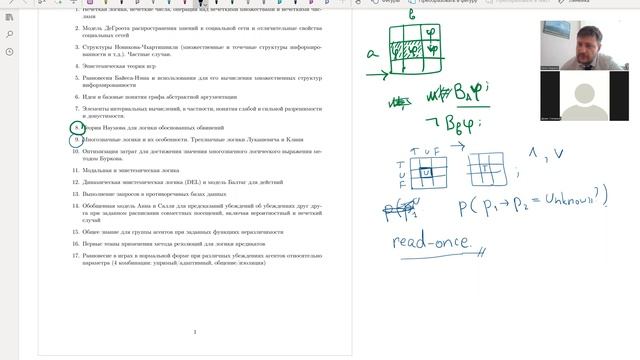 1. Нечеткая логика, нечеткие числа, операции над нечеткими множествами и нечеткими чис-
лами
2. Модель ДеГроота распространения мнений в социальной сети и отличительные свойства
социальных сетей
3. Структуры Новикова-Чхартишвили (множественные и точечные структуры информиро-
ванности и т.д.). Частные случаи.
4. Эпистемическая теория игр
5. Равновесия Байеса-Нэша и использования для его вычисления множественных структур
информированности
6. Идеи и базовые понятия графа абстрактной аргументации
7. Элементы интервальных вычислений, в частности, понятия слабой и сильной разрешимости
и допустимости.
8. Теория Наумова для логики обоснованных обвинений
9. Многозначные логики и их особенности. Трехзначные логики Лукашевича и Клини
10. Оптимизация затрат для достижения значения многозначного логического выражения ме-
тодом Буркова.
11. Модальная и эпистемическая логика
12. Динамическая эпистемическая логика (DEL) и модель Балтаг для действий
13. Выполнение запросов в противоречивых базах данных
14. Обобщенная модель Анна и Салли для предсказаний убеждений об убеждениях друг дру-
га при заданном расписании совместных посещений, включая вероятностный и нечеткий
случай
15. Общее знание для группы агентов при заданных функциях нерациональности
16. Первые темы применения метода резолюций для логики предикатов
17. Равновесие в играх в нормальной форме при различных убеждениях агентов относительно
параметра (4 комбинации: упрямый/адаптивный, общение/изоляция)
1
b
a
φ
φ φ
B_A φ ;
¬ B_B φ ;
T U F
T
U
F
U
T
;
∧, ∨
p( p₁→p₂ = Unknown )
read-once.